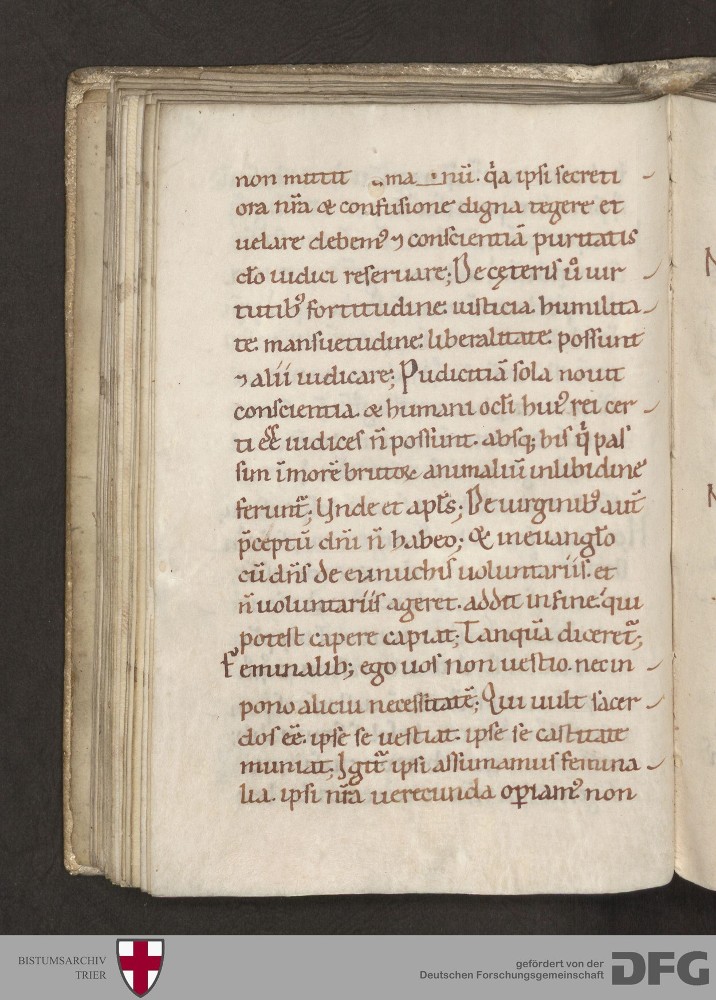 non mittit ma nū. q̇a ipsi secreti
ora nr̄a & confusione digna tegere et
uelare debem᾿ ⁊ conscientiā puritatis
do iudici reseruare; De cęteris ů uir
tutib᾿ fortitudine. iusticia. humilita
te. mansuetudine. liberalitate. possunt
⁊ alii iudicare; Pudicitiā sola nouit
conscientia. & humani oc̄li hui᾿ rei cer
ti eē̄ iudices n̄ possunt. absq; his q̇ pas
sim ī morē brutoꝝ animaliū inlibidine
ferunt᷑; Unde et apl̄s; De uirginib᾿ aut̄
p̄ceptū dn̄i n̄ habeo; & ineuangl̄o
cū dn̄s de eunuchis uoluntariis. et
n̄ uoluntariis ageret. addit infine. qui
potest capere capiat; Tanquā diceret᷑;
Feminalib; ego uos non uestio. nec in
pono alicui necessitatē; Qui uult sacer
dos eē̄. ipse se uestiat. ipse se castitate
muniat; Igit᷑ ipsi assumamus femina
lia. ipsi nr̄a uerecunda opiam᾿ non
BISTUMSARCHIV
TRIER
gefördert von der
Deutschen Forschungsgemeinschaft
DFG